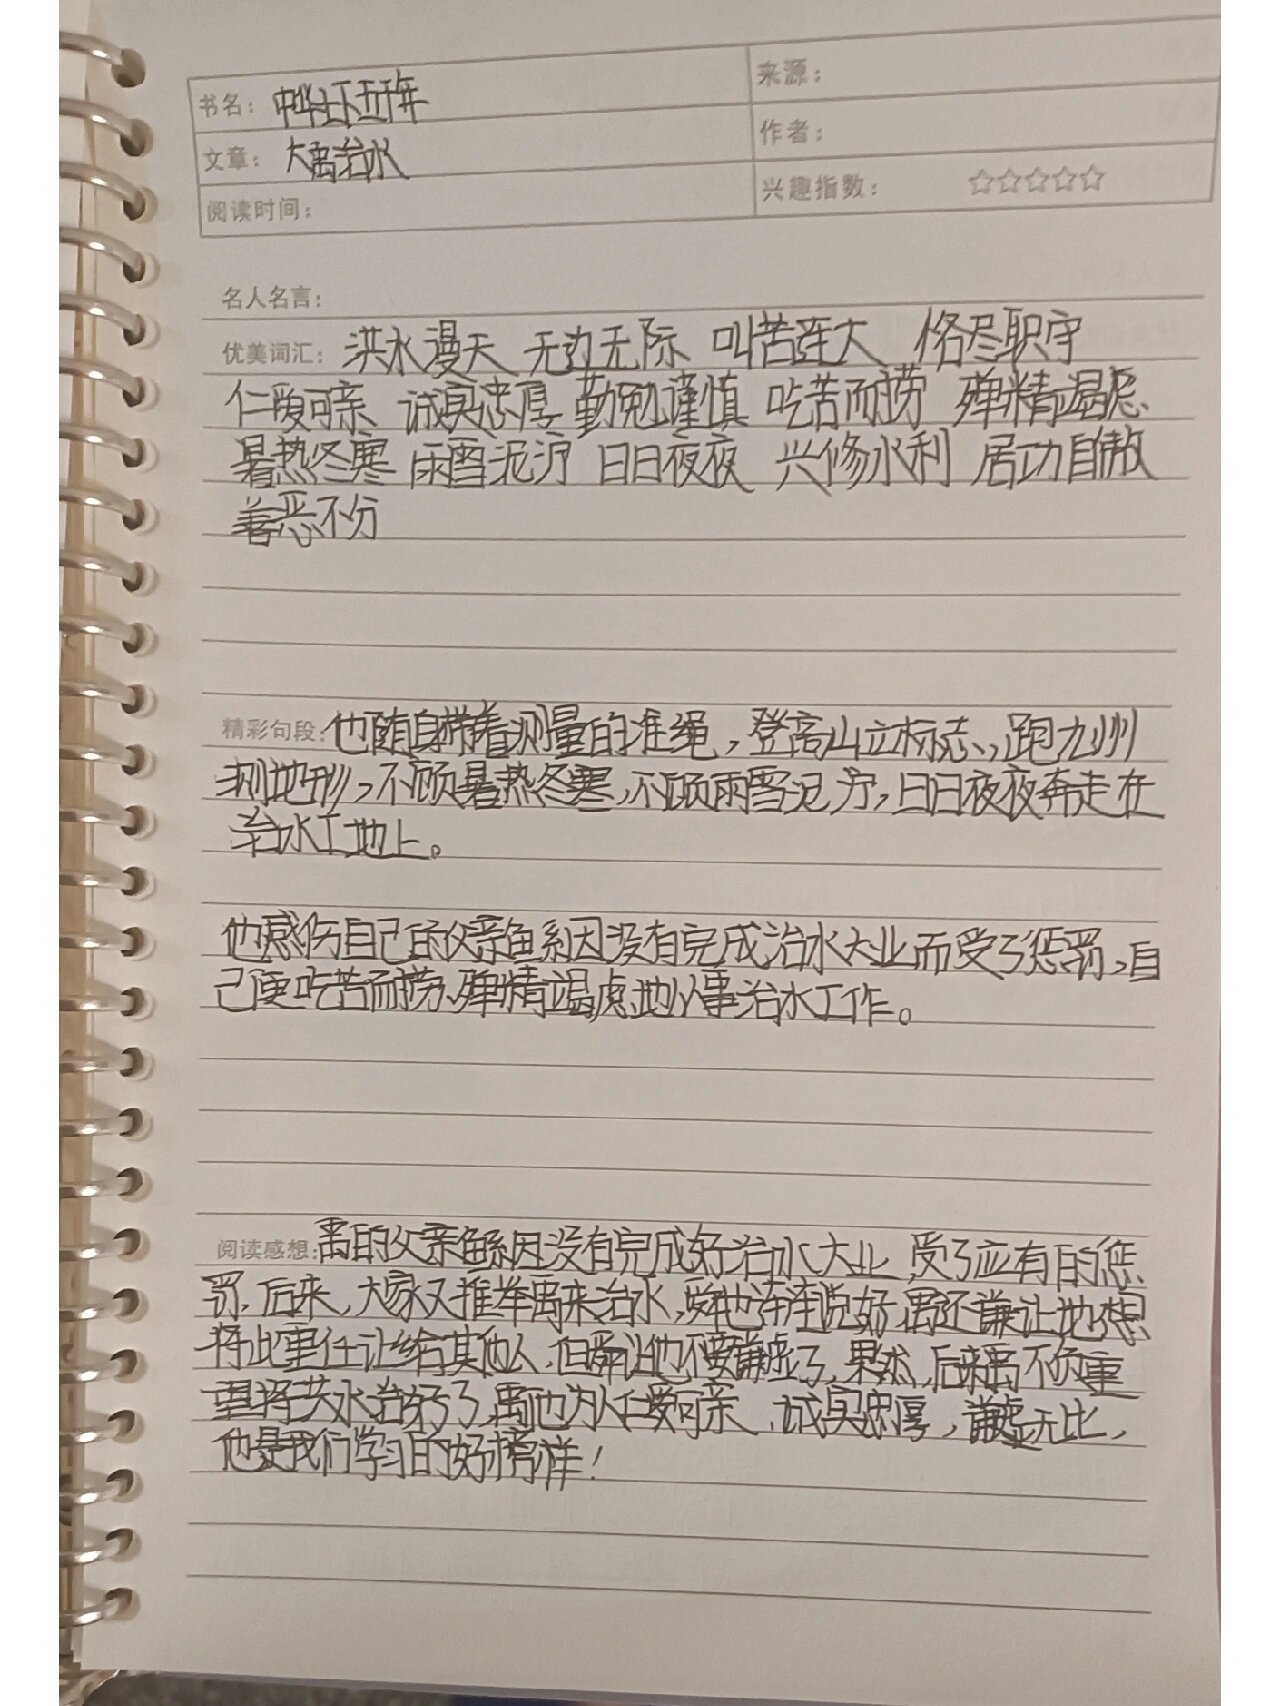 书名：中华上下五千年
来源：
文章：大禹治水
作者：
阅读时间：
兴趣指数：☆☆☆☆☆
名人名言：
优美词汇：洪水漫天 无边无际 叫苦连天 恪尽职守
仁爱可亲 诚实忠厚 勤勉谨慎 吃苦而捞 殚精竭虑
暑热冬寒 雨雪泥泞 日日夜夜 兴修水利 居功自傲
善恶不分
精彩句段：他随身带着测量的准绳，登高山立标志、跑九州
测地形，不顾暑热冬寒，不顾雨雪泥泞，日日夜夜奔走在
治水工地上。
他感伤自己的父亲鲧因没有完成治水大业而受了惩罚，自
己便吃苦而捞、殚精竭虑地从事治水工作。
阅读感想：禹的父亲鲧因没有完成好治水大业，受了应有的惩
罚，后来，大家又推举禹来治水，舜也连连说好，禹还谦让地想
将此事任让给其他人，但舜让他不要谦虚了，果然，后来禹不负重
望将洪水治好了，禹也为人仁爱可亲、诚实忠厚，谦虚无比，
他是我们学习的好榜样！